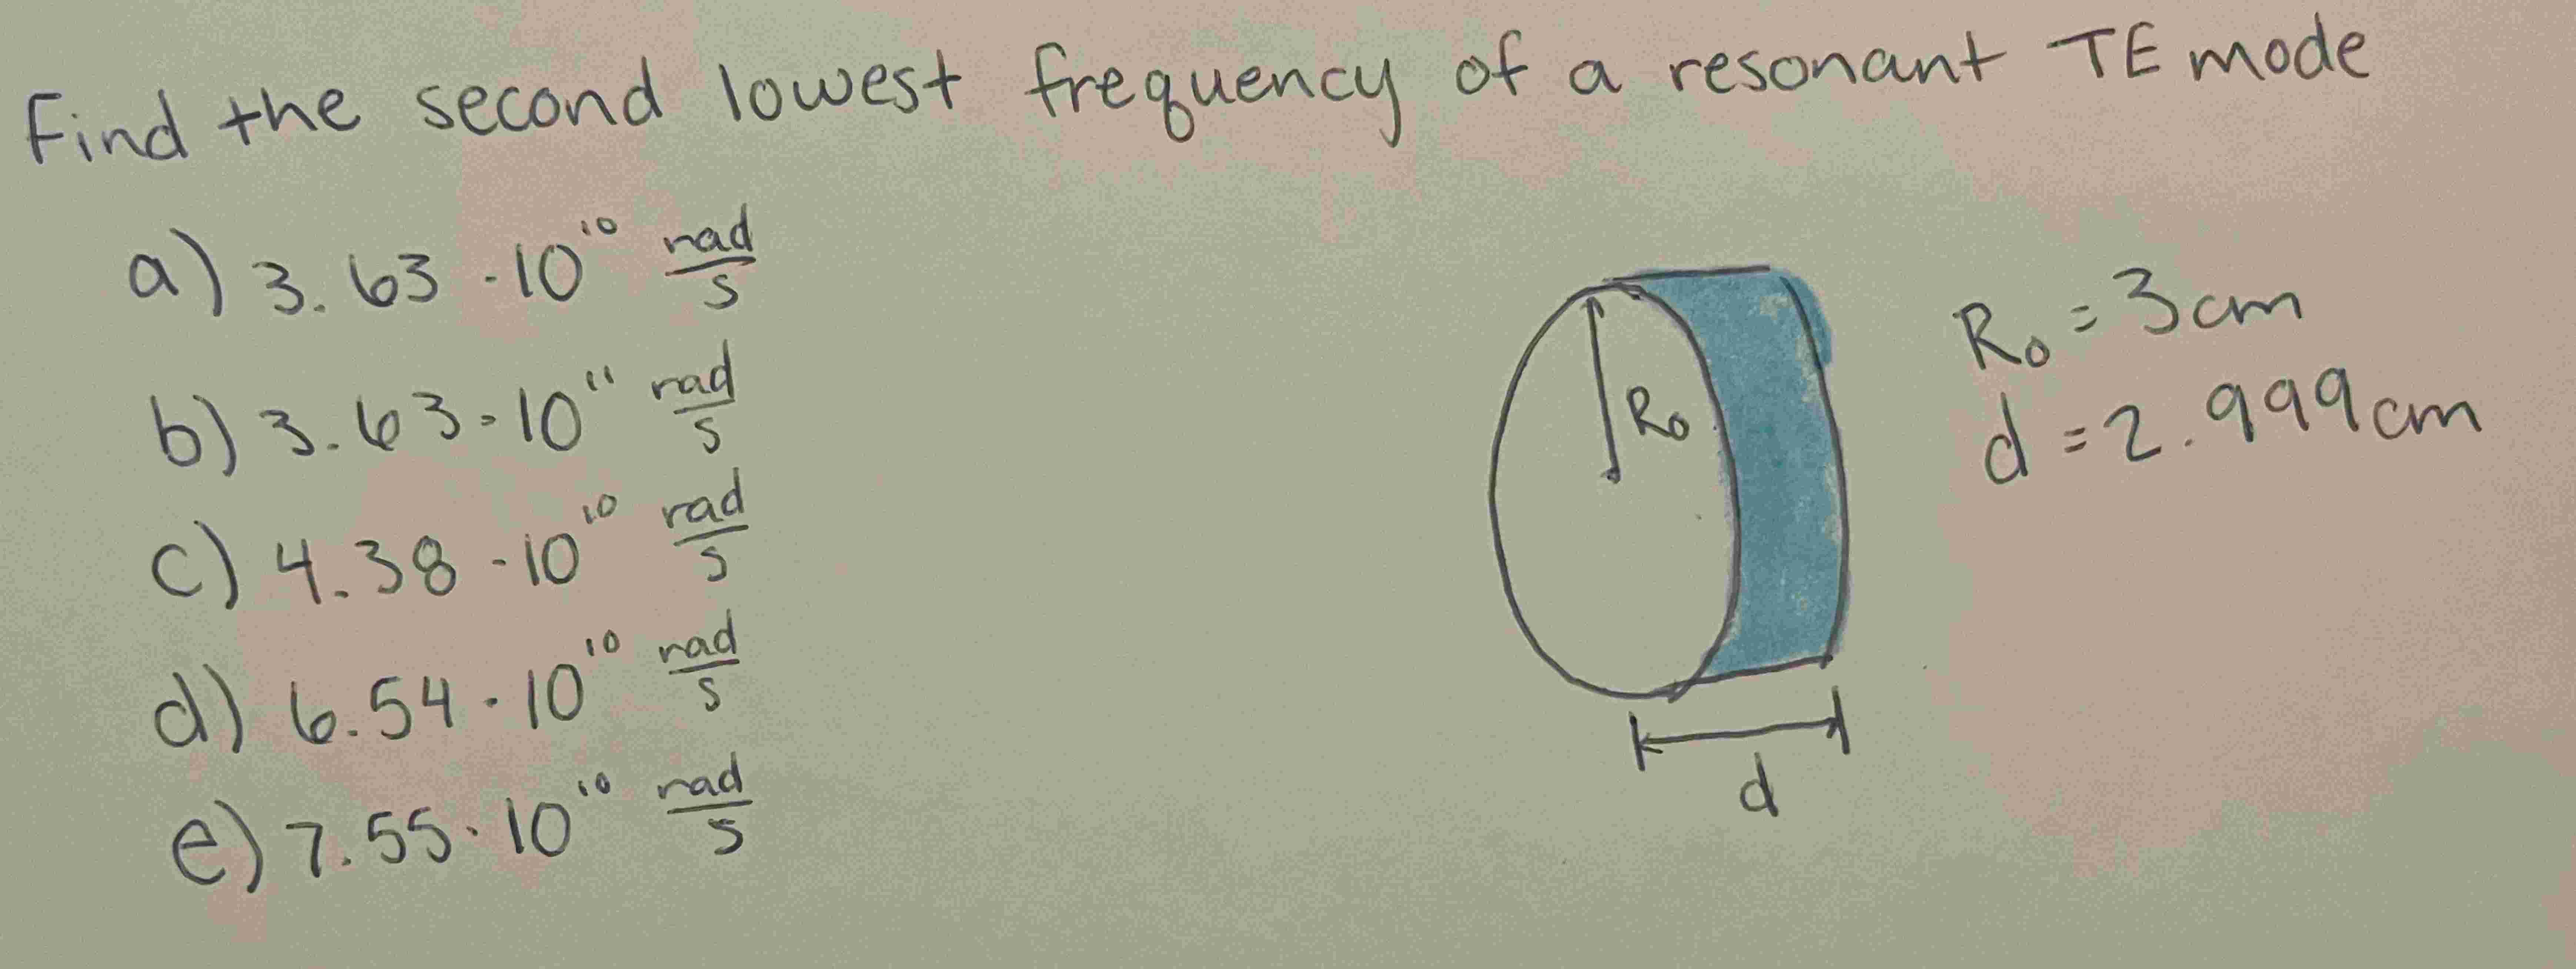 Find the second lowest frequency of a resonant TE mode
a) 3.63 · 10¹⁰ rad/s
b) 3.63 · 10¹¹ rad/s
c) 4.38 · 10¹⁰ rad/s
d) 6.54 · 10¹⁰ rad/s
e) 7.55 · 10¹⁰ rad/s
R₀
d
R₀ = 3cm
d = 2.999cm